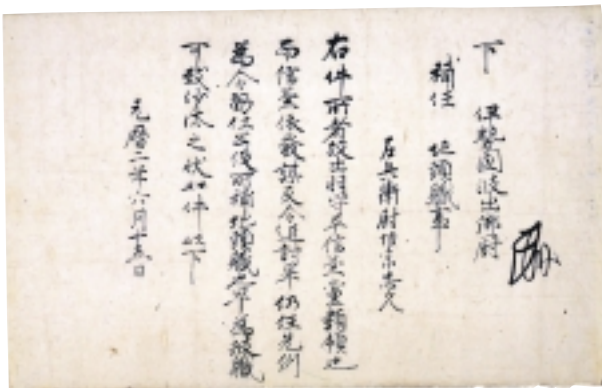 下　伊勢国波出御厨
補任　地頭職事
左兵衛尉惟宗忠久
右件所者故出羽守平信兼党類領也
而信兼依発謀反令追討畢仍任先例
為令勤仕公役所補地頭職也早為彼職
可致沙汰之状如件以下
元暦二年六月十五日